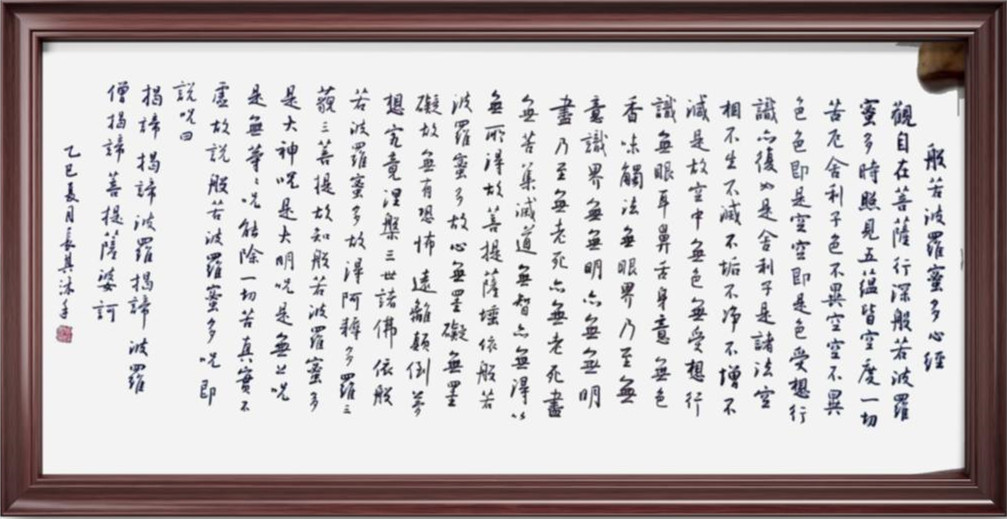 般若波羅蜜多心經
觀自在菩薩行深般若波羅
蜜多時照見五蘊皆空度一切
苦厄舍利子色不異空空不異
色色即是空空即是色受想行
識亦復如是舍利子是諸法空
相不生不滅不垢不淨不增不
減是故空中無色無受想行
識無眼耳鼻舌身意無色
香味觸法無眼界乃至無
意識界無無明亦無無明
盡乃至無老死亦無老死盡
無苦集滅道無智亦無得以
無所得故菩提薩埵依般若
波羅蜜多故心無罣礙無罣
礙故無有恐怖遠離顛倒夢
想究竟涅槃三世諸佛依般
若波羅蜜多故得阿耨多羅三
藐三菩提故知般若波羅蜜多
是大神咒是大明咒是無上咒
是無等〻咒能除一切苦真實不
虛故說般若波羅蜜多咒即
說咒曰
揭諦 揭諦 波羅揭諦 波羅
僧揭諦 菩提薩婆訶
乙巳夏月沐手